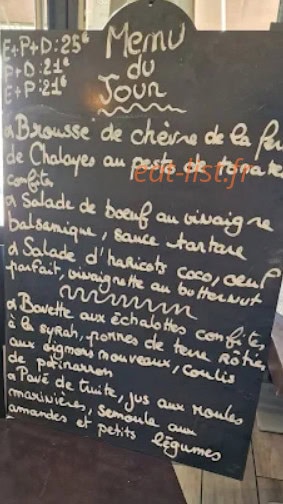 E+P+D: 25€
P+D: 21€
E+P: 21€
Menu
du
Jour
Brousse de chèvre de la
de Chalayes au pesto de tomates
confites
edt-list.fr
Salade de boeuf au vinaigre
balsamique, sauce tartare
Salade d'haricots coco, oeuf
parfait, vinaigrette au butternut
Bavette aux échalottes confites,
à la syrah, pommes de terre Rôties
aux oignons nouveaux, coulis
de potimarron
Pavé de truite, jus aux moules
marinières, semoule aux
amandes et petits légumes